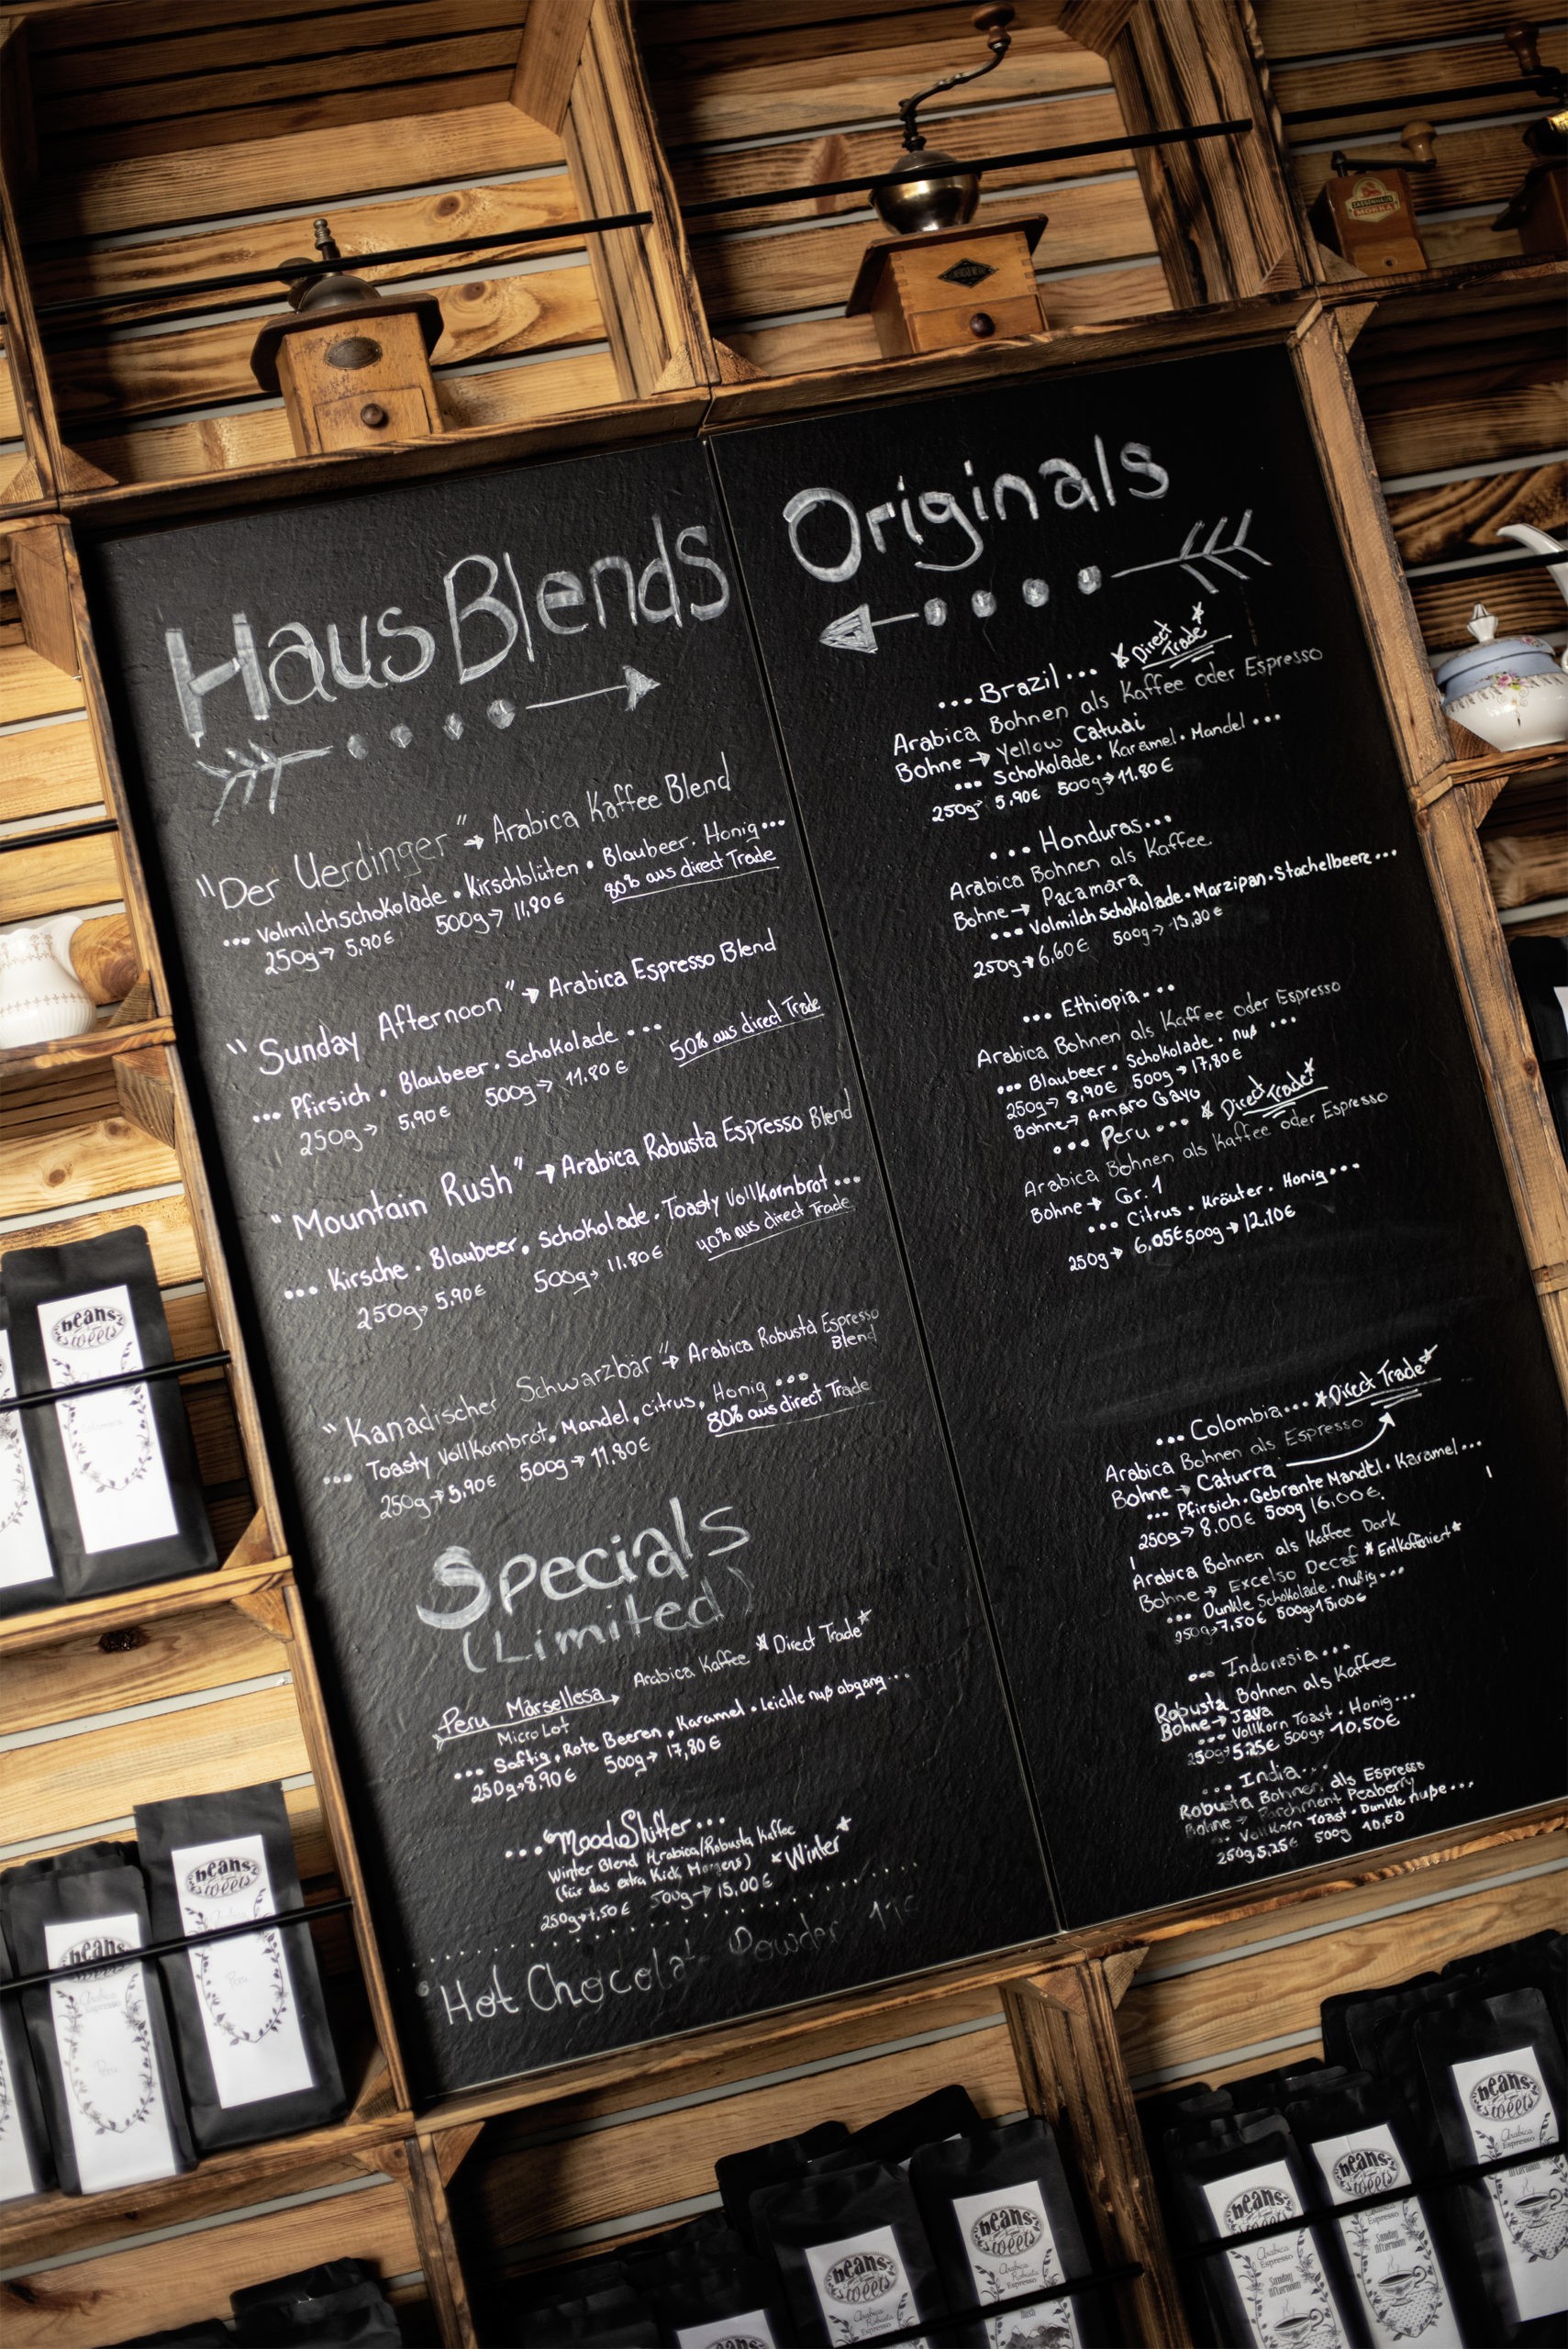 Haus Blends
"Der Uerdinger" → Arabica Kaffee Blend
... Volmilchschokolade • Kirschblüten • Blaubeer. Honig...
250g → 5,90€ 500g → 11,80€ 80% aus direct Trade
"Sunday Afternoon" → Arabica Espresso Blend
... Pfirsich • Blaubeer. Schokolade ...
250g → 5,90€ 500g → 11.80€ 50% aus direct Trade
"Mountain Rush" → Arabica Robusta Espresso Blend
... Kirsche • Blaubeer. Schokolade. Toasty Vollkornbrot...
250g → 5.90€ 500g → 11.80€ 40% aus direct Trade
"Kanadischer Schwarzbär" → Arabica Robusta Espresso
Blend
... Toasty Vollkornbrot, Mandel, citrus, Honig ...
250g → 5.90€ 500g → 11.80€ 80% aus direct Trade
Specials
(Limited)
Peru Marsellesa → Arabica Kaffee *Direct Trade*
Micro Lot
... Saftig, Rote Beeren, Karamel • leichte nuß abgang...
250g → 8.90€ 500g → 17,80€
... "MoodShifter...
Winter Blend Arabica/Robusta Kaffee
(für das extra Kick Morgens) *Winter*
250g → 7,50€ 500g → 15,00€
Hot Chocolat Powder
Originals
... Brazil ... *Direct Trade*
Arabica Bohnen als Kaffee oder Espresso
Bohne → Yellow Catuai
... Schokolade. Karamel. Mandel ...
250g → 5,90€ 500g → 11.80€
... Honduras...
Arabica Bohnen als Kaffee
Bohne → Pacamara
... Volmilchschokolade. Marzipan. Stachelbeere...
250g → 6,60€ 500g → 13,20€
... Ethiopia ...
Arabica Bohnen als Kaffee oder Espresso
... Blaubeer. Schokolade. nuß ...
250g → 8,90€ 500g → 17,80€
Bohne → Amaro Gayo
... Peru ... *Direct Trade*
Arabica Bohnen als Kaffee oder Espresso
Bohne → Gr. 1
... Citrus. Kräuter. Honig...
250g → 6,05€ 500g → 12.10€
... Colombia... *Direct Trade*
Arabica Bohnen als Espresso
Bohne → Caturra
... Pfirsich. Gebrante Mandel. Karamel...
250g → 8.00€ 500g 16.00€
Arabica Bohnen als Kaffee Dark
Bohne → Excelso Decaf *Entkoffeniert*
... Dunkle Schokolade. nußig...
250g → 7,50€ 500g → 15,00€
... Indonesia...
Robusta Bohnen als Kaffee
Bohne → Java
... Vollkorn Toast. Honig...
250g → 5.25€ 500g → 10,50€
... India...
Robusta Bohnen als Espresso
Bohne → Parchment Peaberry
... Vollkorn Toast. Dunkle nuße...
250g 5,25€ 500g 10,50
MOKKA
beans
sweets
beans
sweets
Arabica
Espresso
Peru
beans
sweets
Peru
beans
sweets
Arabica
Robusta
beans
sweets
Arabica
Robusta
Espresso
Rush
beans
sweets
Arabica
Espresso
Sunday
Afternoon
beans
sweets
Sunday
Afternoon
beans
sweets
Arabica
Espresso
Afternoon